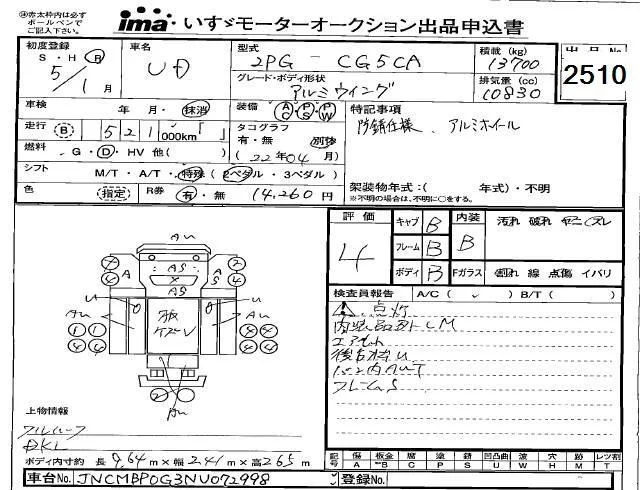 ※赤太枠内は必ず
ボールペンで
ご記入下さい。
ima いすゞモーターオークション出品申込書
初度登録
S・H・R
5/1月
車名
UD
型式
2PG - CG5CA
グレード・ボディ形状
アルミウイング
積載 (kg)
13700
排気量 (cc)
10830
出品No
2510
車検 年・月・抹消
装備 AC PS PW
特記事項
防錆仕様、アルミホイール
走行 (B) 521 000km「 」
タコグラフ
有・無 別体
(22年04月)
燃料 G・D・HV 他( )
シフト M/T・A/T・特殊 (2ペダル・3ペダル)
色 (指定) R券 有・無 14,260円
架装物年式:( 年式)・不明
※不明の場合は、不明に○をする。
評価
4
キャブ B
フレーム B
ボディ B
内装
B
汚れ 破れ ヤニ スレ
Fガラス 割れ 線 点傷 イバリ
検査員報告 A/C( ✓ ) B/T( )
点灯
エアセット
フレームS
Au
AS
AS
A
A
U
U
Au
Au
Au
上物情報
フルハーフ
DKL
ボディ内寸約 長 9.64m×幅 2.41m×高 2.65m
記号 傷 A 板金 B 腐 C 塗 P 錆 S 凹凸曲 U 波 W 穴 H 跡 M レツ割 T
車台No. JNCMBP0G3NU072998
登録No.